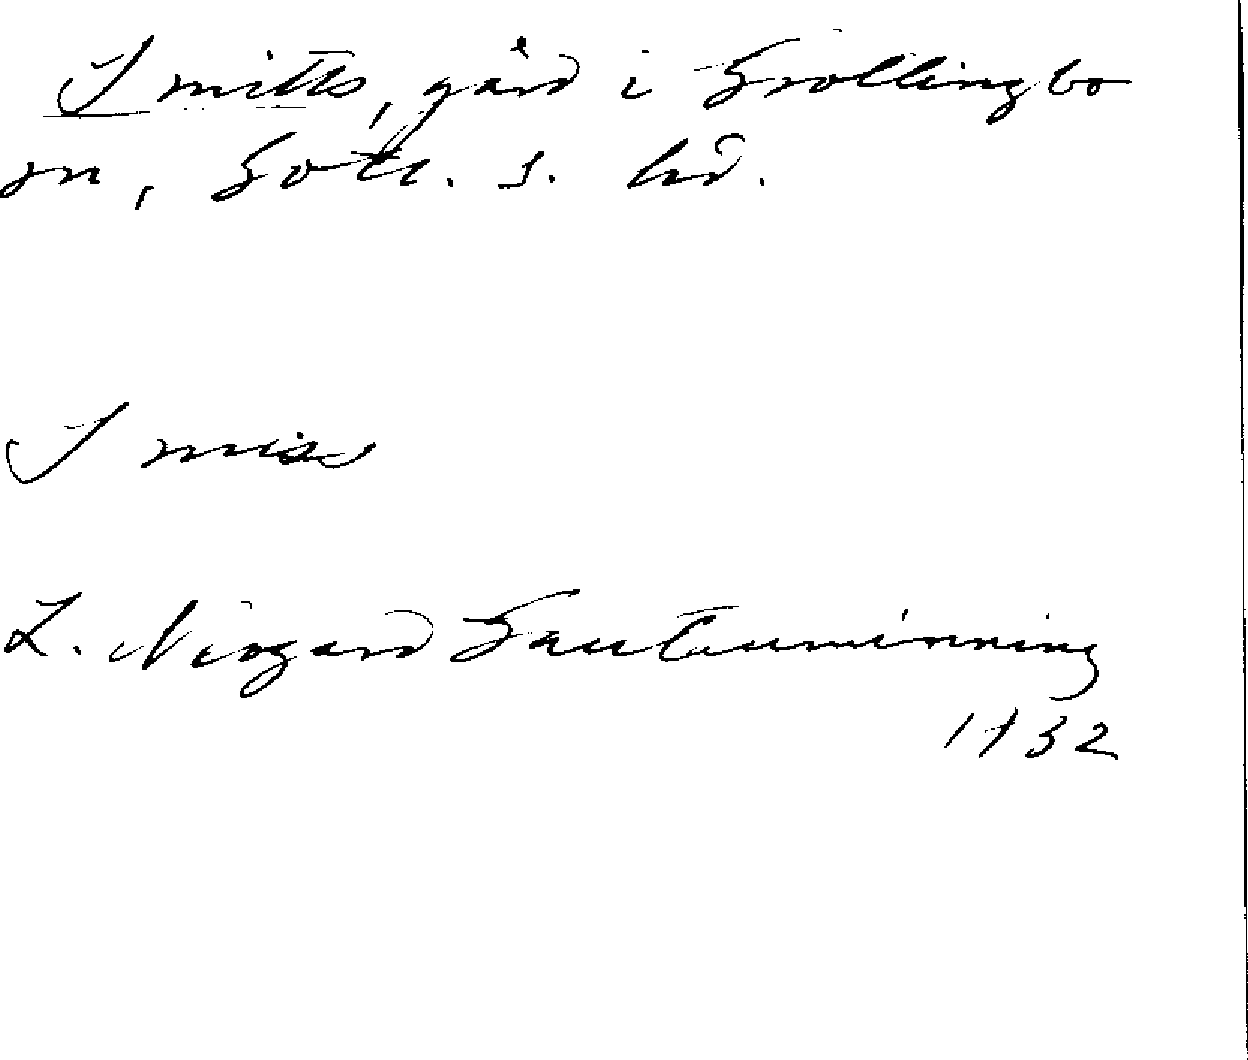 Smitts, gård i Grötlingbo
sn, Gotl. s. hd.
Smiss
L. Niogard Gautaminning
1732